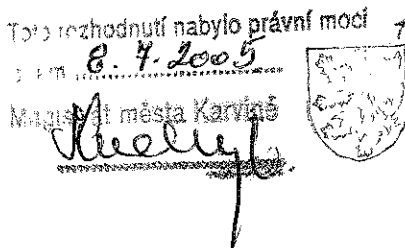 Toto rozhodnutí nabylo právní moci
dnem 8. 7. 2005
Magistrát města Karviné